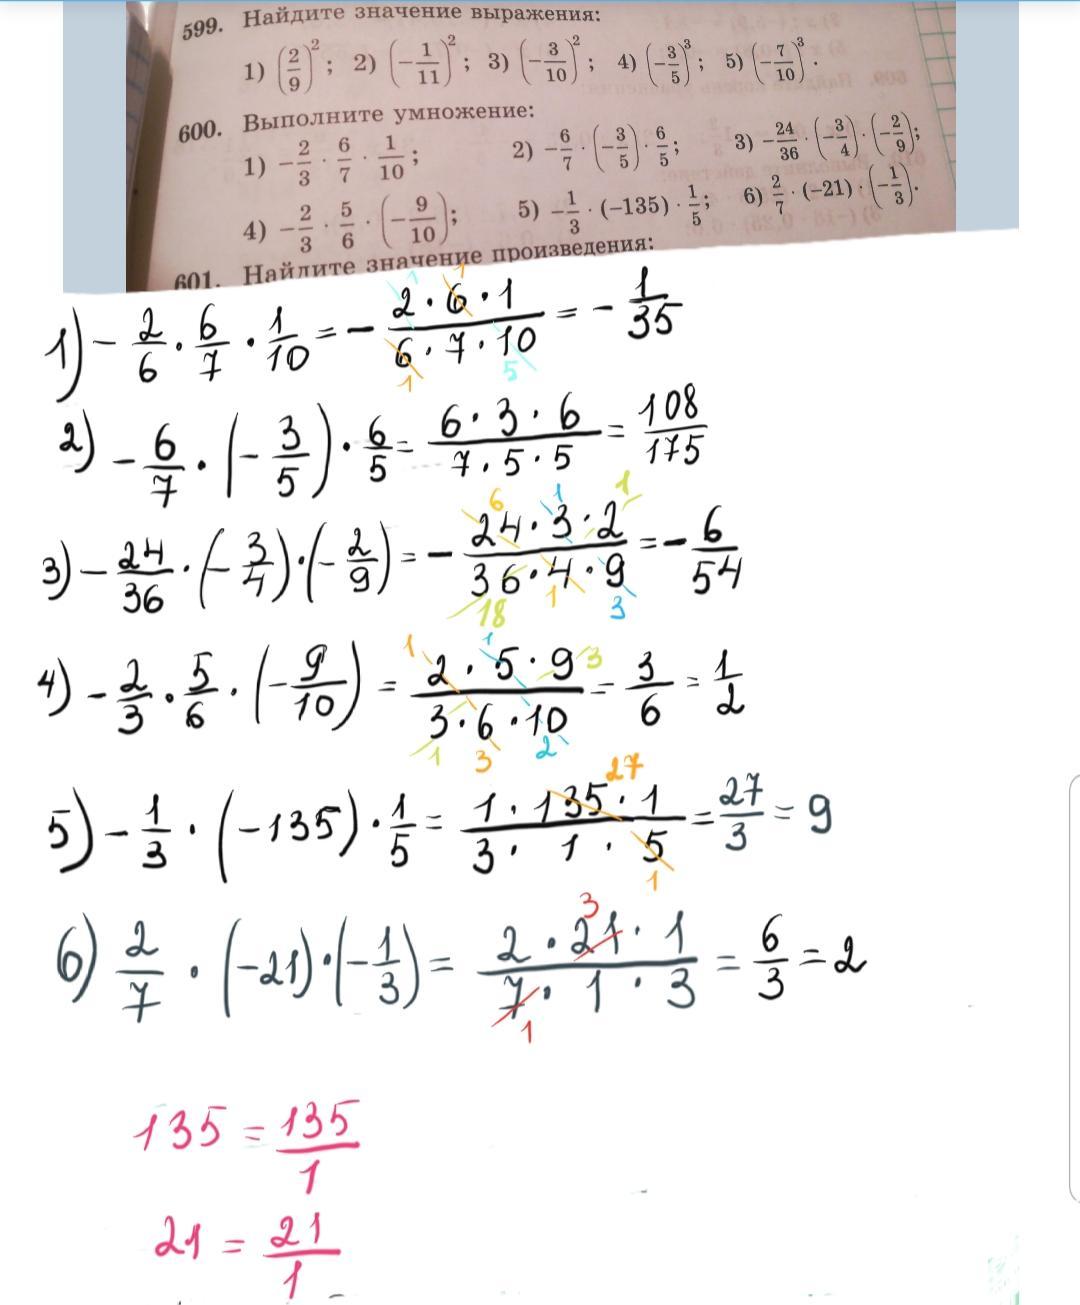 599. Найдите значение выражения:
1) (2/9)²; 2) (-1/11)²; 3) (-3/10)²; 4) (-3/5)³; 5) (-7/10)³.
600. Выполните умножение:
1) -2/3 · 6/7 · 1/10; 2) -6/7 · (-3/5) · 6/5; 3) -24/36 · (-3/4) · (-2/9);
4) -2/3 · 5/6 · (-9/10); 5) -1/3 · (-135) · 1/5; 6) 2/7 · (-21) · (-1/3).
601. Найдите значение произведения:
1) -2/6 · 6/7 · 1/10 = - 2·6·1/6·7·10 = - 1/35
1 1 1 5
2) -6/7 · (-3/5) · 6/5 = 6·3·6/7·5·5 = 108/175
3) -24/36 · (-3/4) · (-2/9) = - 24·3·2/36·4·9 = - 6/54
6 1 1 18 1 3
4) -2/3 · 5/6 · (-9/10) = 2·5·9/3·6·10 = 3/6 = 1/2
1 1 3 1 3 2
5) -1/3 · (-135) · 1/5 = 1·135·1/3·1·5 = 27/3 = 9
27 1
6) 2/7 · (-21) · (-1/3) = 2·21·1/7·1·3 = 6/3 = 2
3 1
135 = 135/1
21 = 21/1